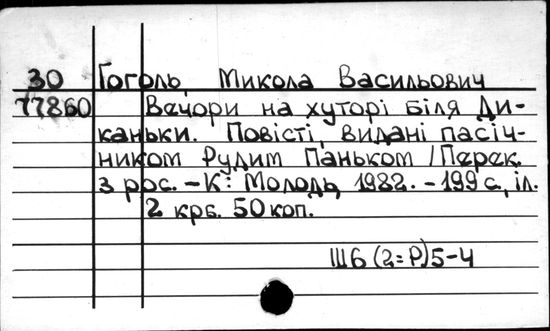 30 Гоголь, Микола Васильович
77860 Вечори на хуторі біля Ди-
каньки. Повісті, видані пасіч-
ником Рудим Паньком / Перек.
з рос. – К.: Молодь, 1982. – 199 с., іл.
2 крб. 50 коп.
Ш6(2=Р)5-4